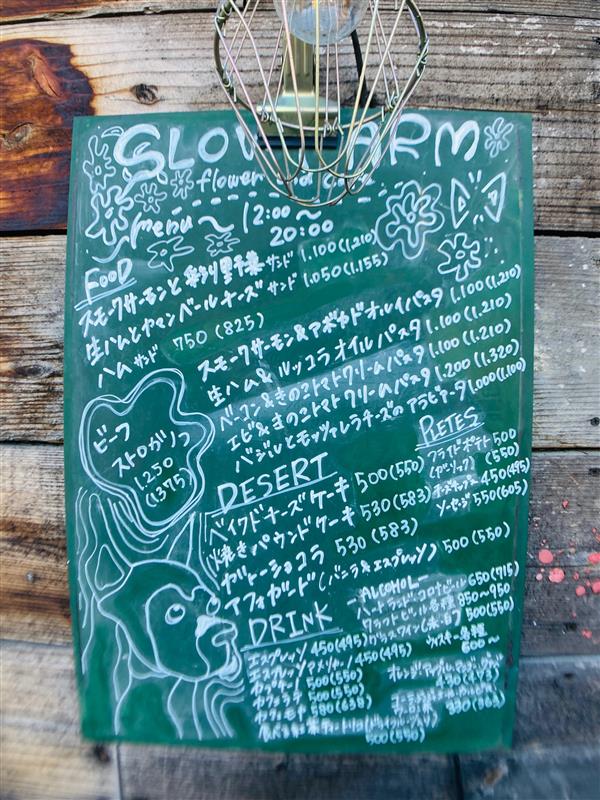 SLOW FARM
flower
menu〜 12:00〜
20:00
FOOD
スモークサーモンと彩り野菜サンド 1.100(1.210)
生ハムとカマンベールチーズサンド 1.050(1.155)
ハムサンド 750(825)
スモークサーモン&アボカドオイルパスタ 1.100(1.210)
生ハム&ルッコラオイルパスタ 1.100(1.210)
ベーコン&きのこトマトクリームパスタ 1.100(1.210)
エビ&きのこトマトクリームパスタ 1.200(1.320)
バジルとモッツァレラチーズのアラビアータ 1.000(1.100)
ビーフ
ストロガノフ
1.250
(1375)
PLETES
フライドポテト 500
(ガーリック) (550)
450(495)
ソーセージ 550(605)
DESERT
ベイクドチーズケーキ 500(550)
焼きパウンドケーキ 530(583)
ガトーショコラ 530(583)
アフォガード(バニラ&エスプレッソ) 500(550)
ALCOHOL
ハートランド・コロナビール 650(715)
クラフトビール各種 850〜950
グラスワイン(赤・白) 500(550)
ウィスキー各種
600〜
DRINK
エスプレッソ 450(495)
エスプレッソアメリカーノ 450(495)
カプチーノ 500(550)
カフェラテ 500(550)
カフェモカ 580(638)
500(550)
オレンジ・アップル
430(473)
330(363)